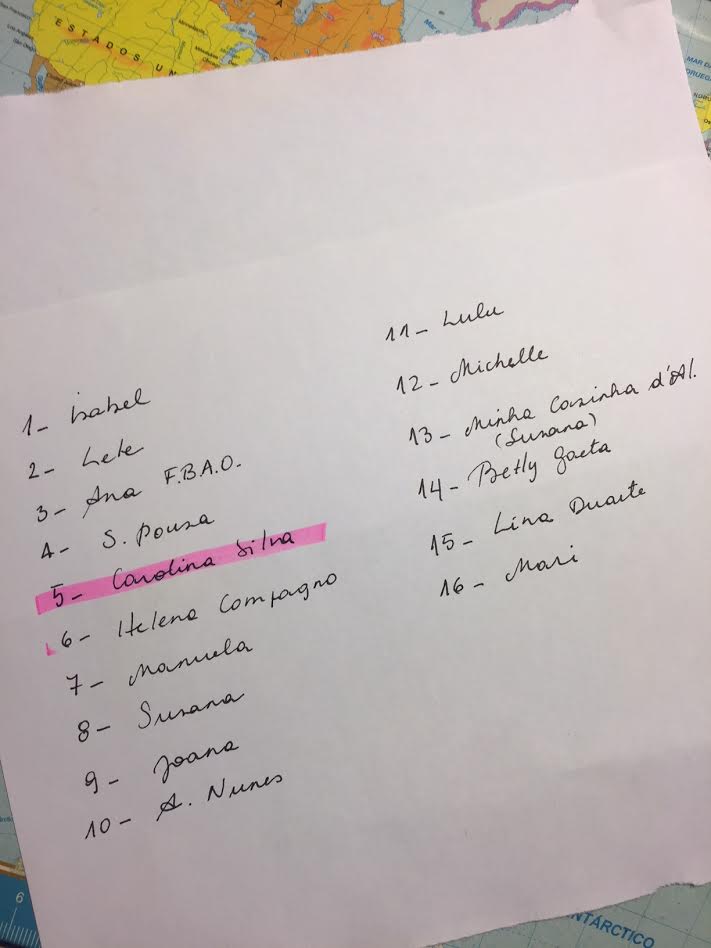 ESTADOS UN
MAR DA
NORUEG
1- Isabel
2- Lete
3- Ana F.B.A.O.
4- S. Pousa
5- Carolina Silva
6- Helena Compagno
7- Manuela
8- Susana
9- Joana
10- A. Nunes
11- Lulu
12- Michelle
13- Minha Casinha d'Al.
(Susana)
14- Betly Gaeta
15- Lina Duarte
16- Mari
6
ANTÁRCTICO